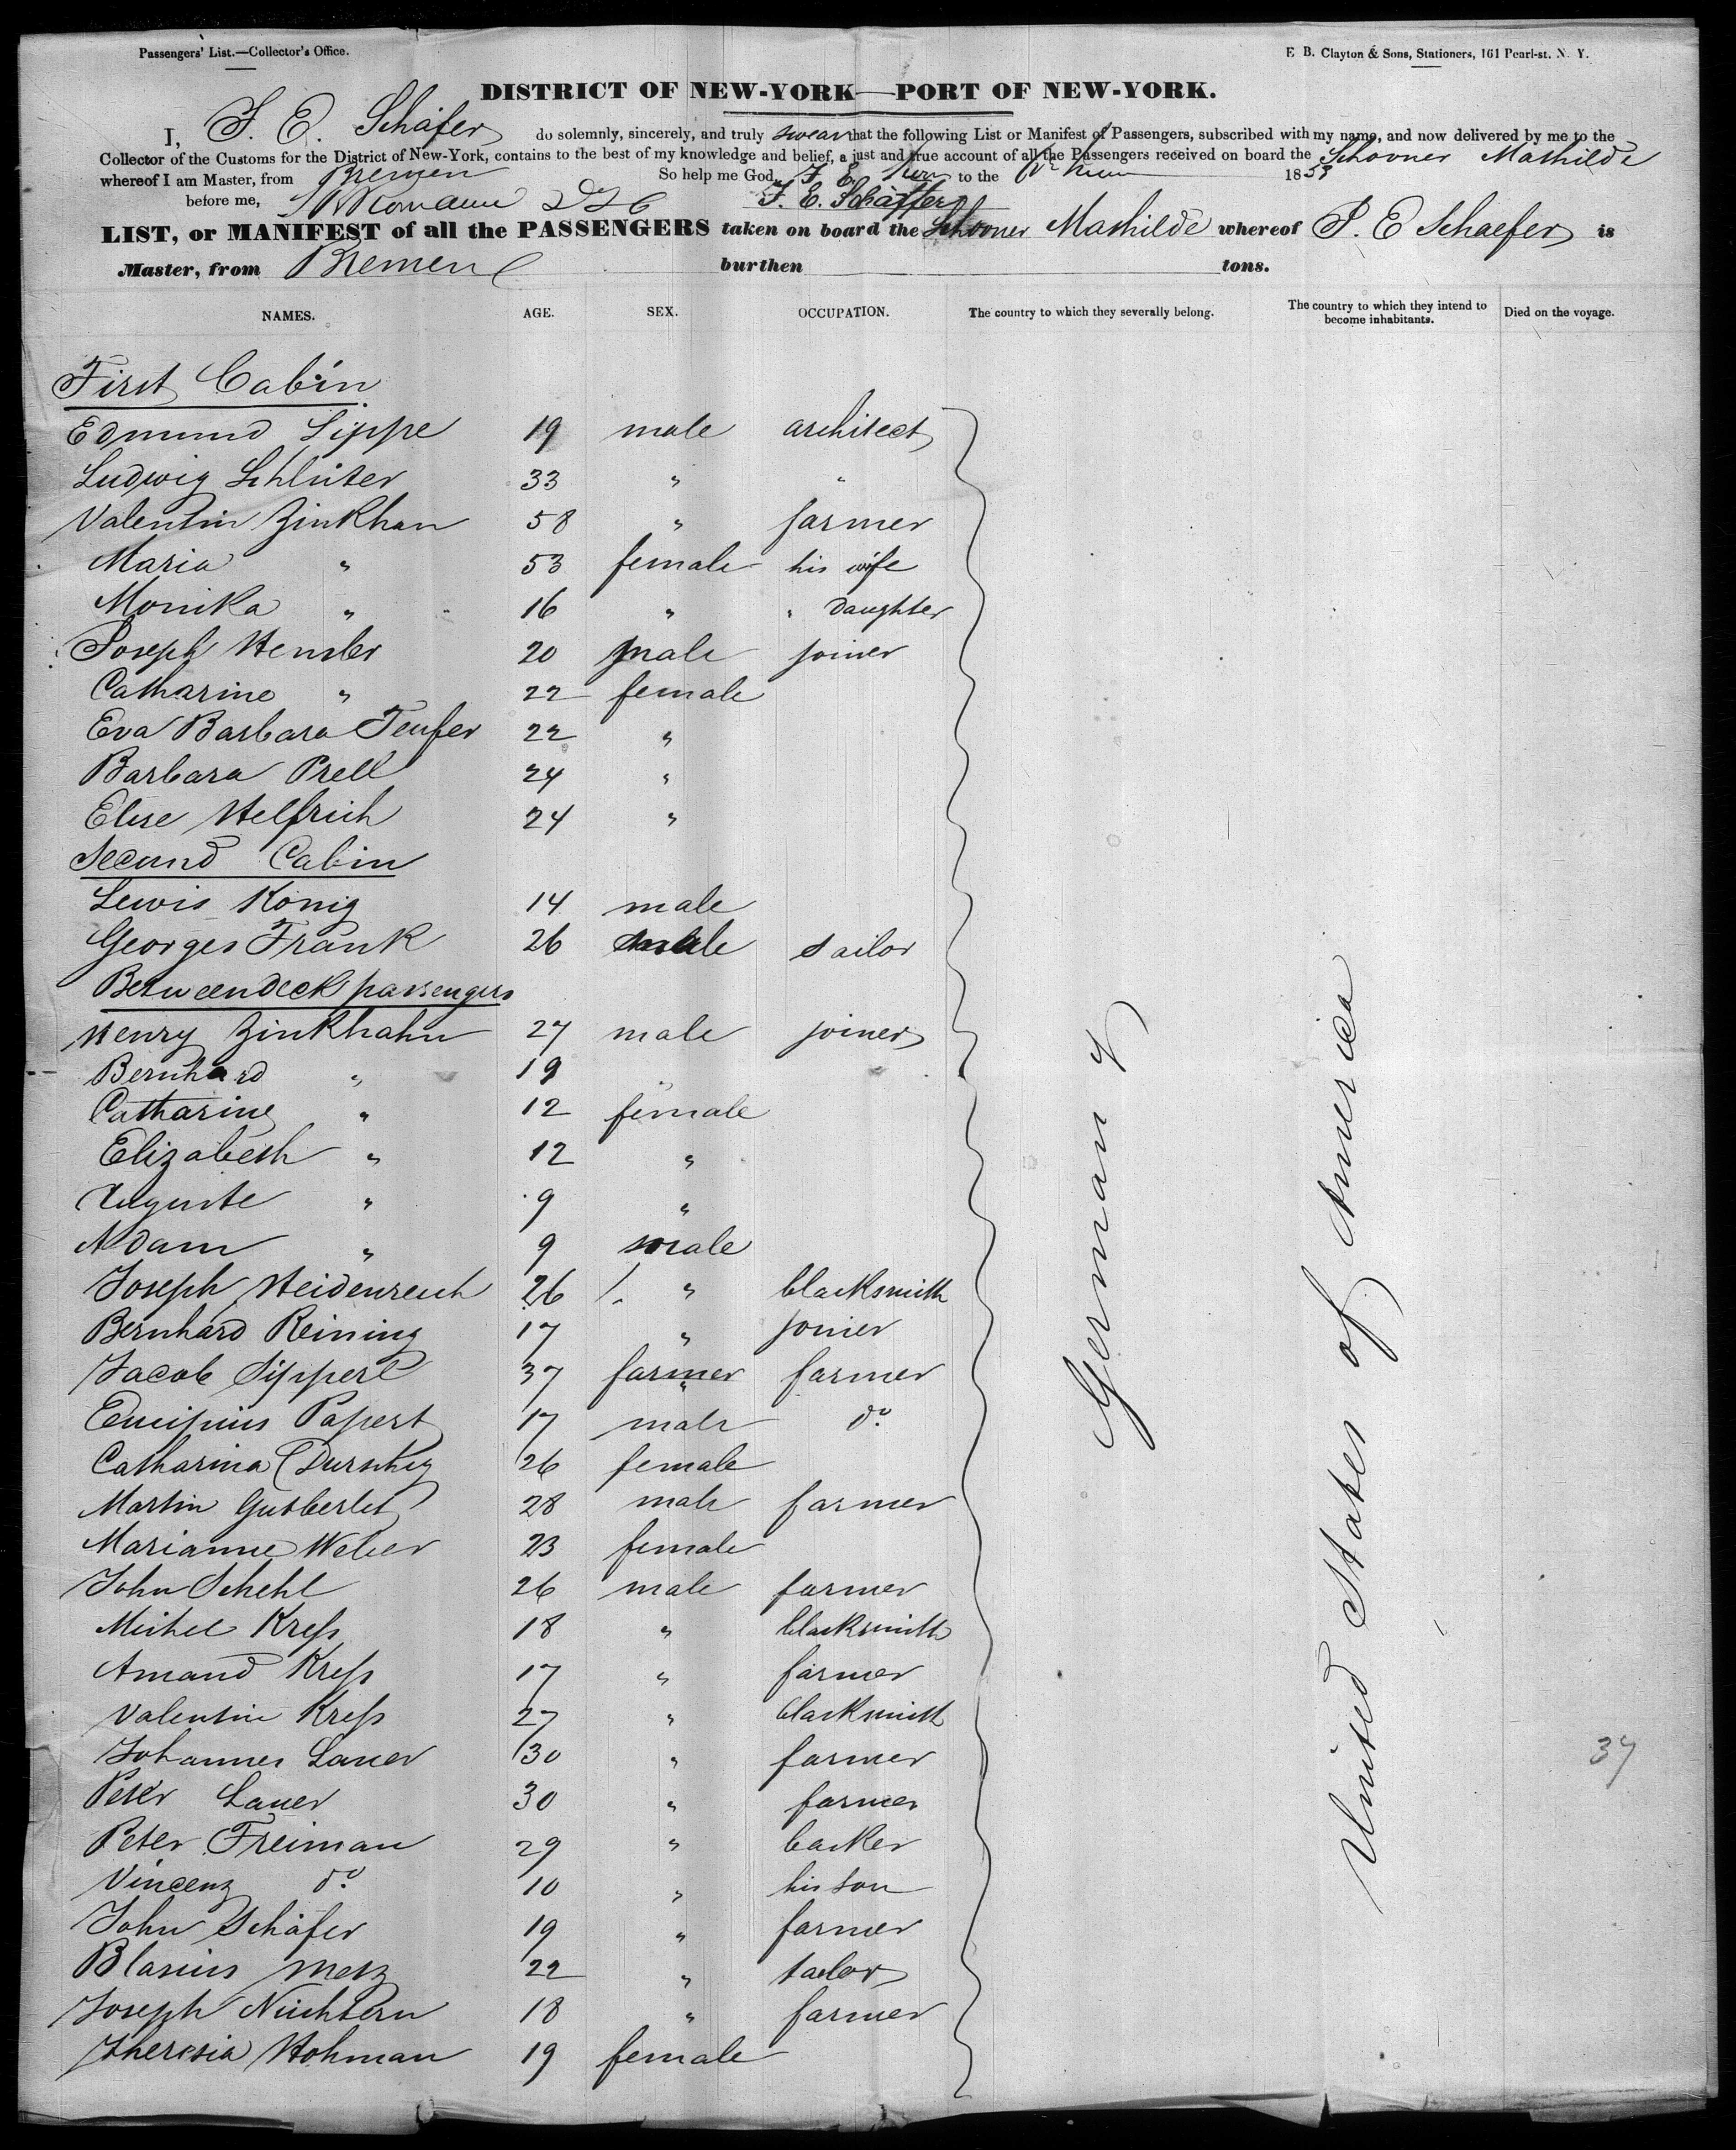 Passengers' List.—Collector's Office.
E. B. Clayton & Sons, Stationers, 161 Pearl-st. N. Y.
DISTRICT OF NEW-YORK—PORT OF NEW-YORK.
I, J. E. Schäfer do solemnly, sincerely, and truly swear that the following List or Manifest of Passengers, subscribed with my name, and now delivered by me to the
Collector of the Customs for the District of New-York, contains to the best of my knowledge and belief, a just and true account of all the Passengers received on board the Schooner Mathilde
whereof I am Master, from Bremen So help me God. to the 185
before me, J. E. Schäffer
LIST, or MANIFEST of all the PASSENGERS taken on board the Schooner Mathilde whereof J. E Schaefer is
Master, from Bremen burthen tons.
NAMES. AGE. SEX. OCCUPATION. The country to which they severally belong. The country to which they intend to become inhabitants. Died on the voyage.
First Cabin
Edmund Lippe 19 male architect
Ludwig Schlüter 33 " "
Valentin Zinkhan 58 " farmer
Maria " 53 female his wife
Monika " 16 " " daughter
Joseph Hensler 20 male joiner
Catharine " 22 female
Eva Barbara Teufer 22 "
Barbara Prell 24 "
Elise Helfrich 24 "
Second Cabin
Lewis König 14 male
Georges Frank 26 male sailor
Betweendeck passengers
Henry Zinkhahn 27 male joiner
Bernhard " 19 "
Catharine " 12 female
Elizabeth " 12 "
Auguste " 9 "
Adam " 9 male
Joseph Heidenreich 26 " blacksmith
Bernhard Reining 17 " joiner
Jacob Sipperl 37 farmer " farmer
Papert 17 male do.
Catharina 26 female
Martin Gutberlet 28 male farmer
Marianne Weber 23 female
John Schehl 26 male farmer
Michel Kreſs 18 " blacksmith
Amand Kreſs 17 " farmer
Valentin Kreſs 27 " blacksmith
Johannes Lauer 30 " farmer
Peter Lauer 30 " farmer
Peter Freiman 29 " backer
Vincenz do. 10 " his son
John Schäfer 19 " farmer
Blasius Metz 22 " tailor
Joseph Nüchtern 18 " farmer
Theresia Hohman 19 female
Germany
United States of America
37